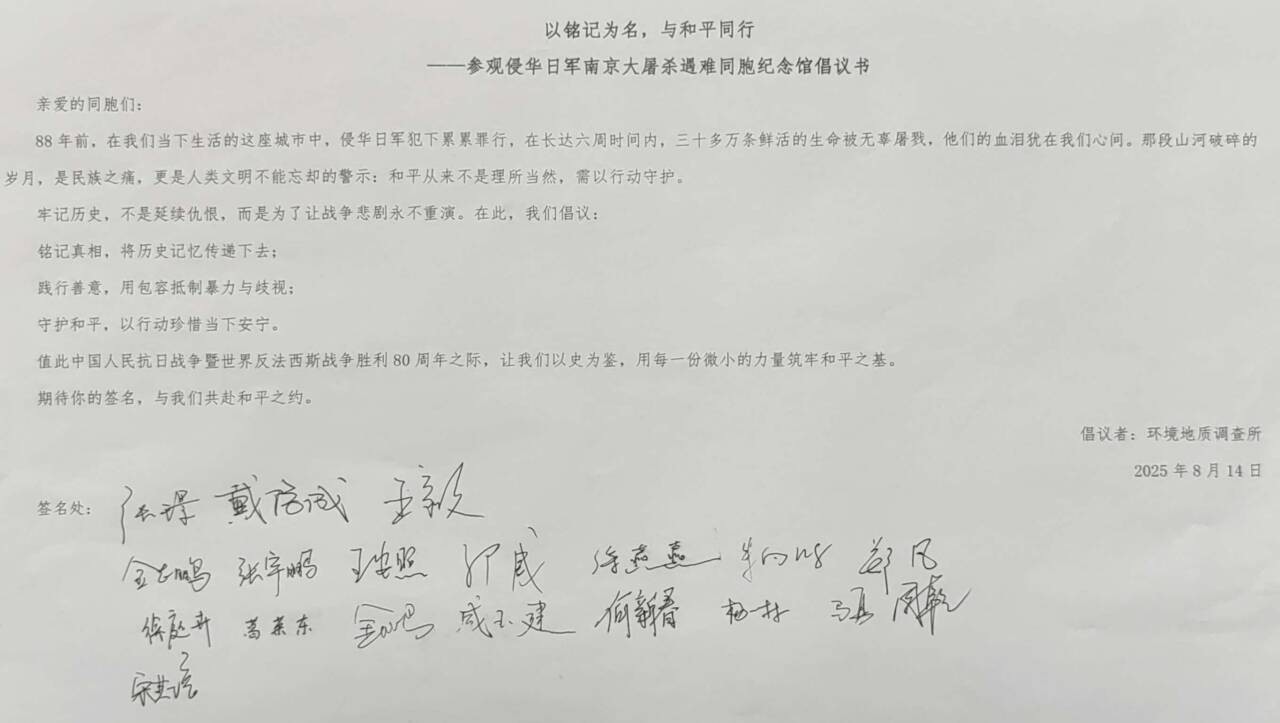 以铭记为名，与和平同行
——参观侵华日军南京大屠杀遇难同胞纪念馆倡议书
亲爱的同胞们：
88年前，在我们当下生活的这座城市中，侵华日军犯下累累罪行，在长达六周时间内，三十多万条鲜活的生命被无辜屠戮，他们的血泪犹在我们心间。那段山河破碎的
岁月，是民族之痛，更是人类文明不能忘却的警示：和平从来不是理所当然，需以行动守护。
牢记历史，不是延续仇恨，而是为了让战争悲剧永不重演。在此，我们倡议：
铭记真相，将历史记忆传递下去；
践行善意，用包容抵制暴力与歧视；
守护和平，以行动珍惜当下安宁。
值此中国人民抗日战争暨世界反法西斯战争胜利80周年之际，让我们以史为鉴，用每一份微小的力量筑牢和平之基。
期待你的签名，与我们共赴和平之约。
倡议者：环境地质调查所
2025年8月14日
签名处： 王毅
张宇鹏 徐燕燕 郑风
葛莱东 成玉建 何新春 杨一林